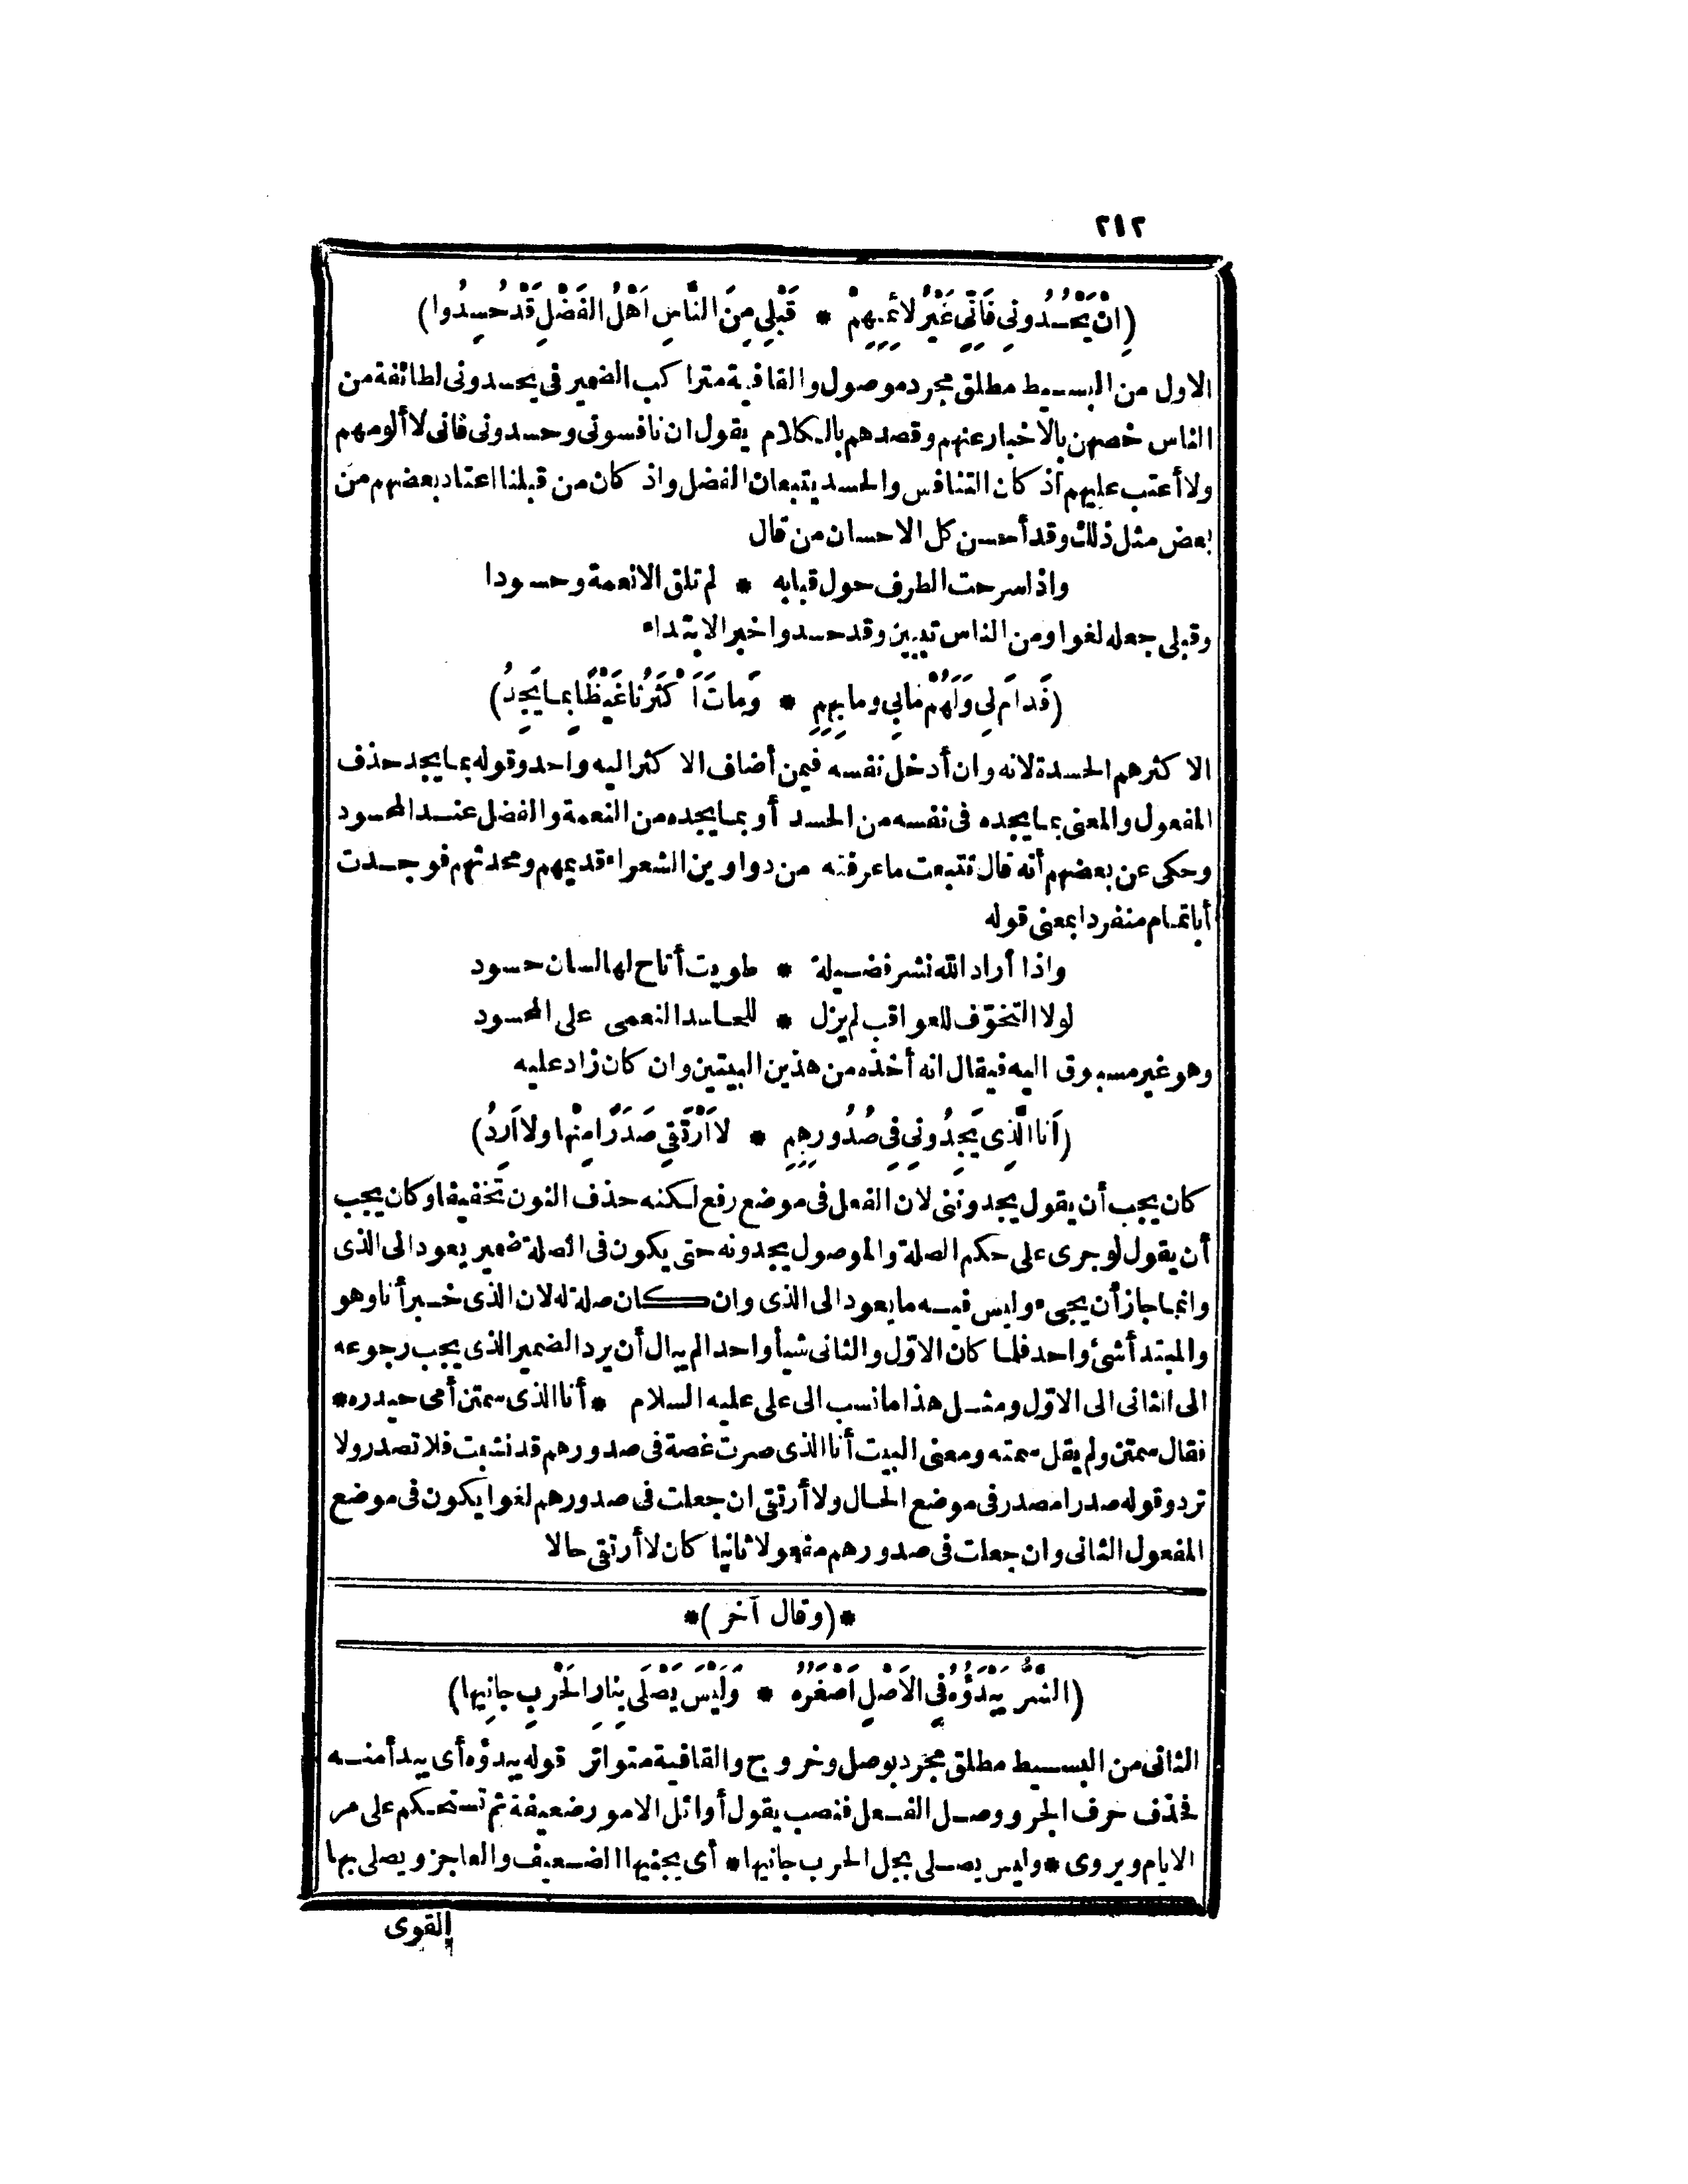 ٢١٢
(اِنْ يَحْسُدُونِي فَاِنِّي غَيْرُ لائِمِهِمْ * قَبْلِي مِنَ النَّاسِ اَهْلُ الفَضْلِ قَدْ حُسِدُوا)
الاول من البسيط مطلق مجرد موصول والقافية متراكب الضمير فى يحسدونى لطائفة من
الناس خصهن بالاخبار عنهم وقصدهم بالكلام يقول ان نافسونى وحسدونى فانى لا ألومهم
ولا أعتب عليهم اذ كان التنافس والحسد يتبعان الفضل واذ كان من قبلنا اعتاد بعضهم من
بعض مثل ذلك وقد أحسن كل الاحسان من قال
واذا سرحت الطرف حول قبابه * لم تلق الا نعمة وحسودا
وقبلى جعله لغوا ومن الناس تبيين وقد حسدوا خبر الابتداء
(فَدامَ لِي وَلَهُمْ مابِي وما بِهِمِ * وَماتَ اَكْثَرُنا غَيْظًا بِما يَجِدُ)
الاكثر هم الحسدة لانه وان أدخل نفسه فيمن أضاف الاكثر اليه واحد وقوله بما يجد حذف
المفعول والمعنى بما يجده فى نفسه من الحسد أو بما يجده من النعمة والفضل عند المحسود
وحكى عن بعضهم أنه قال تتبعت ما عرفته من دواوين الشعراء قديمهم ومحدثهم فوجدت
أبا تمام منفردا بمعنى قوله
واذا أراد الله نشر فضيلة * طويت أتاح لها لسان حسود
لولا التخوّف للعواقب لم يزل * للحاسد النعمى على المحسود
وهو غير مسبوق اليه فيقال انه أخذه من هذين البيتين وان كان زاد عليه
(اَنا الَّذِي يَجِدُونِي فِي صُدُورِهِمِ * لا اَرْتَقِي صَدَرًا مِنْها ولا اَرِدُ)
كان يجب أن يقول يجدوننى لان الفعل فى موضع رفع لكنه حذف النون تخفيفا وكان يجب
أن يقول لو جرى على حكم الصلة والموصول يجدونه حتى يكون فى الصلة ضمير يعود الى الذى
وانما جاز أن يجىء وليس فيه ما يعود الى الذى وان كان صلة له لان الذى خبر أنا وهو
والمبتدأ شئ واحد فلما كان الاوّل والثانى شيأ واحدا لم يبال أن يرد الضمير الذى يجب رجوعه
الى الثانى الى الاوّل ومثل هذا ما نسب الى على عليه السلام * أنا الذى سمتن أمى حيدره *
فقال سمتن ولم يقل سمته ومعنى البيت أنا الذى صرت غصة فى صدورهم قد نشبت فلا تصدر ولا
ترد وقوله صدرا مصدر فى موضع الحال ولا أرتقى ان جعلت فى صدورهم لغوا يكون فى موضع
المفعول الثانى وان جعلت فى صدورهم مفعولا ثانيا كان لا أرتقى حالا
*(وقال آخر)*
(الشَّرُّ يَبْدَؤُهُ فِي الاَصْلِ اَصْغَرُهُ * وَلَيْسَ يَصْلَى بِنارِ الحَرْبِ جانِيها)
الثانى من البسيط مطلق مجرد بوصل وخروج والقافية متواتر قوله يبدؤه أى يبدأ منه
فحذف حرف الجر ووصل الفعل فنصب يقول أوائل الامور ضعيفة ثم تستحكم على مر
الايام ويروى * وليس يصلى بجل الحرب جانيها * أى يجنيها الضعيف والعاجز ويصلى بها
القوى